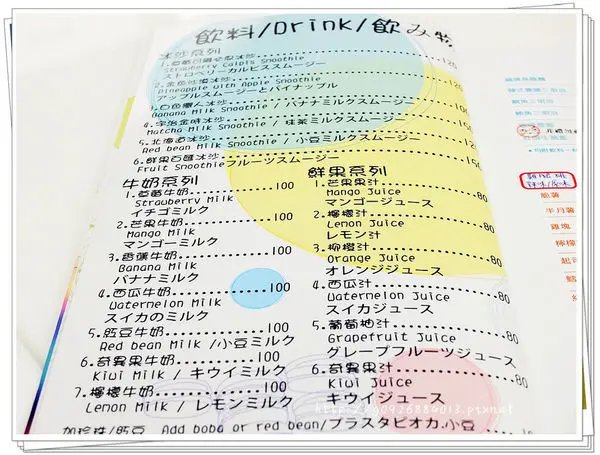 飲料/Drink/飲み物
冰沙系列
Strawberry Calpis Smoothie 120
ストロベリーカルピススムージー
Pineapple with Apple Smoothie
アップルスムージーとパイナップル
Banana Milk Smoothie / バナナミルクスムージー
4.宇治金時冰沙
Matcha Milk Smoothie / 抹茶ミルクスムージー
5.北海道冰沙
Red bean Milk Smoothie / 小豆ミルクスムージー
6.鮮果百匯冰沙
Fruit Smoothieフルーツスムージー
牛奶系列
1.草莓牛奶 100
Strawberry Milk
イチゴミルク
2.芒果牛奶 100
Mango Milk
マンゴーミルク
3.香蕉牛奶 100
Banana Milk
バナナミルク
4.西瓜牛奶 100
Watermelon Milk
スイカのミルク
5.豇豆牛奶 100
Red bean Milk /小豆ミルク
6.奇異果牛奶 100
Kiwi Milk / キウイミルク
7.檸檬牛奶 100
Lemon Milk / レモンミルク
鮮果系列
1.芒果果汁 80
Mango Juice
マンゴージュース
2.檸檬汁 80
Lemon Juice
レモン汁
3.柳橙汁 80
Orange Juice
オレンジジュース
4.西瓜汁 80
Watermelon Juice
スイカジュース
5.葡萄柚汁 80
Grapefruit Juice
グレープフルーツジュース
6.奇異果汁 80
Kiwi Juice
キウイジュース
加珍珠/豇豆 Add boba or red bean/プラスタピオカ.小豆
脆薯
半月薯
雞塊
檸檬